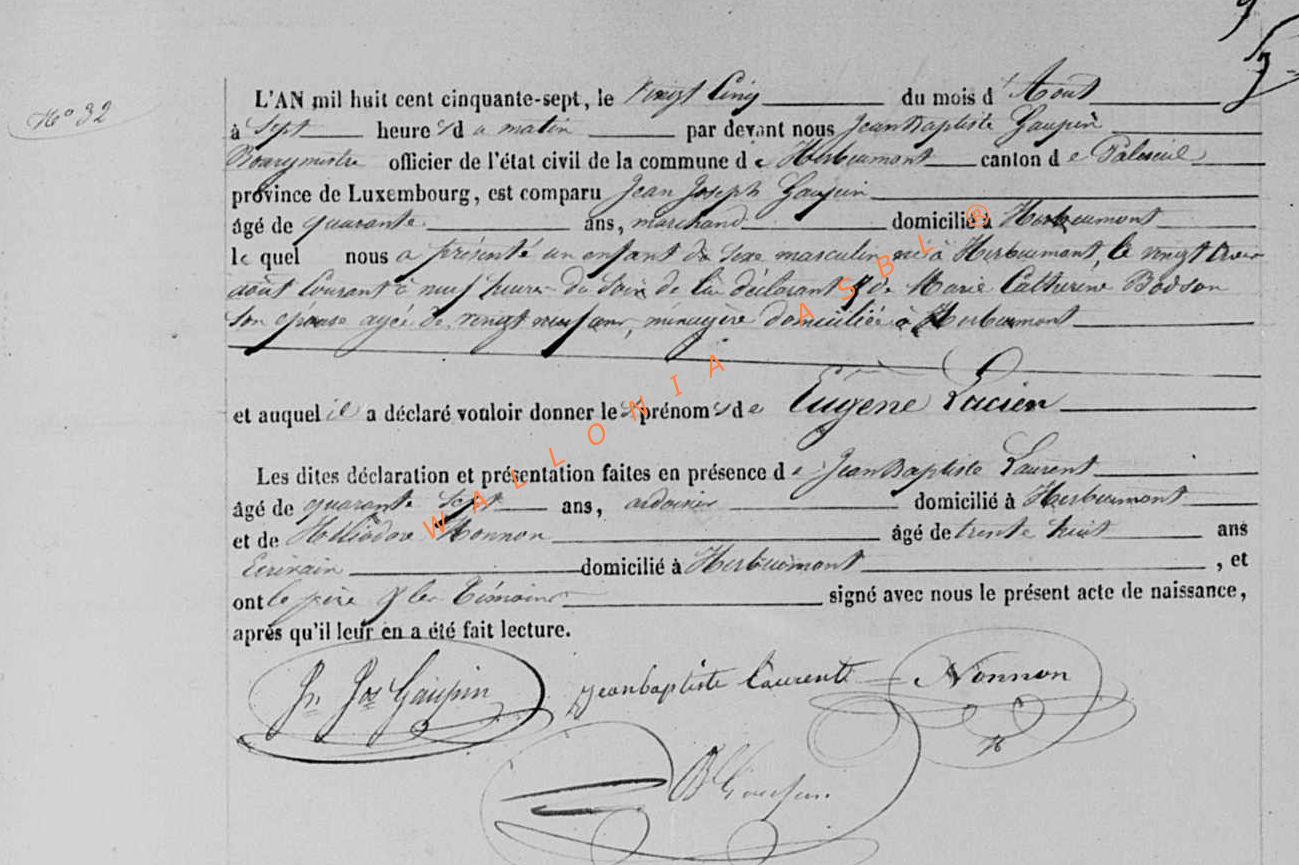 N° 32
L'AN mil huit cent cinquante-sept, le vingt Cinq du mois d' Aout
à Sept heure s d u matin par devant nous Jean Baptiste Gaupin
Bourgmestre officier de l'état civil de la commune d e Herbeumont canton d e Paliseul
province de Luxembourg, est comparu Jean Joseph Gaupin
âgé de quarante ans, marchand domicilié à Herbeumont
le quel nous a présenté un enfant du Sexe masculin né à Herbeumont, le vingt trois
août Courant à neuf heures du Soir de lui déclarant & de Marie Catherine Bodson
Son épouse agée de vingt neuf ans, ménagère domiciliée à Herbeumont
et auquel il a déclaré vouloir donner le s prénom s d e Eugène Lucien
Les dites déclaration et présentation faites en présence d e Jean Baptiste Laurent
âgé de quarante Sept ans, ardoisier domicilié à Herbeumont
et de Héliodore Nonnon âgé de trente huit ans
Ecrivain domicilié à Herbeumont , et
ont le père & les témoins signé avec nous le présent acte de naissance,
après qu'il leur en a été fait lecture.
Jn Jos Gaupin jeanbaptiste Laurent Nonnon
JB Gaupin
WALLONIA ASBL ®